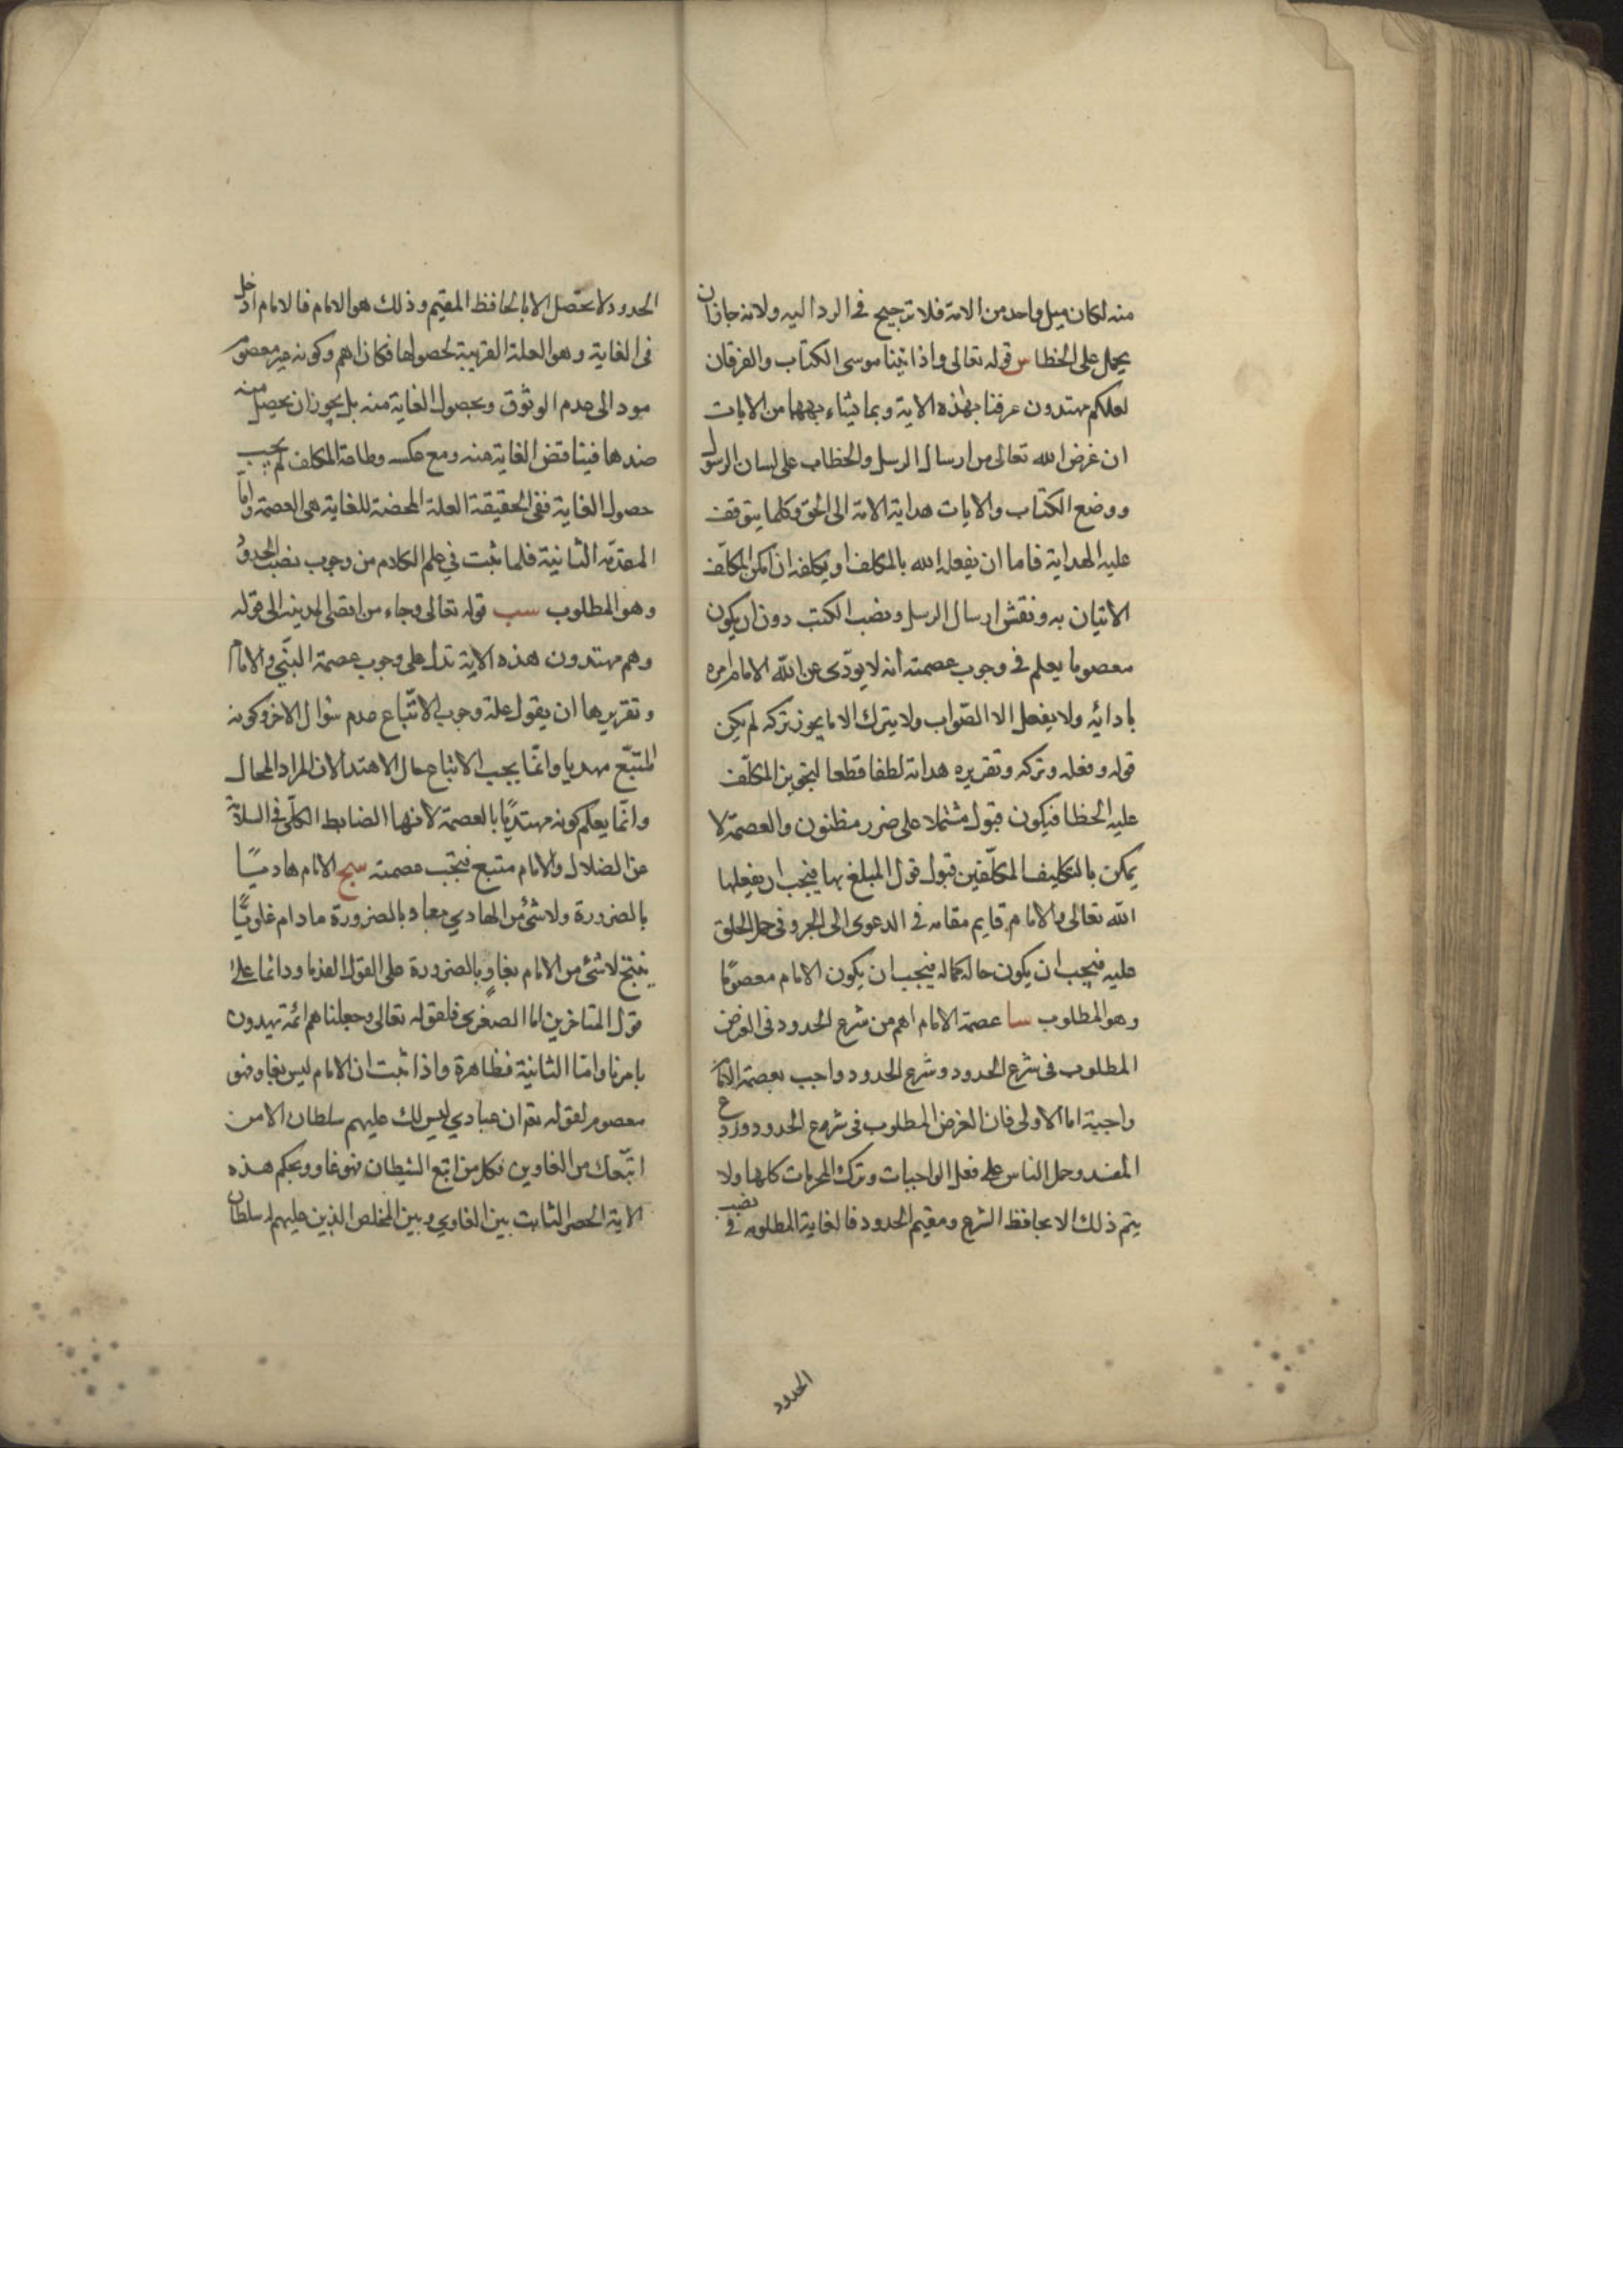 منه لكان ميل واحد من الامة فلا ترجيح فى الرد اليه ولانه جاز ان
يحمل على الخطا س قوله تعالى واذ اتينا موسى الكتاب والفرقان
لعلكم تهتدون عرفنا بهذه الاية وبما يشابهها من الايات
ان غرض الله تعالى من ارسال الرسل والخطاب على لسان الرسول
ووضع الكتاب والايات هداية الامة الى الحق وكلما يتوقف
عليه الهداية فاما ان يفعله الله بالمكلف او يكلفه ان امكن المكلف
الاتيان به ونفس ارسال الرسل ونصب الكتب دون ان يكون
معصوما يعلم فى وجوب عصمته انه لا يودى عن الله الا ما امره
بادائه ولا يفعل الا الصواب ولا يترك الا ما يجوز تركه لم يكن
قوله وفعله وتركه وتقريره هداية لطفا قطعا لتجويز المكلف
عليه الخطا فيكون قبوله مشتملا على ضرر مظنون والعصمة لا
يمكن بالتكليف المكلفين قبول قول المبلغ بها فيجب ان يفعلها
الله تعالى والامام قايم مقامه فى الدعوى الى الخير وفى حمل الخلق
عليه فيجب ان يكون حاله كماله فيجب ان يكون الامام معصوما
وهو المطلوب سا عصمة الامام اهم من شرع الحدود فى الغرض
المطلوب فى شرع الحدود وشرع الحدود واجب بعصمة الامام
واجبة اما الاولى فان الغرض المطلوب فى شروع الحدود وردع
المفسد وحمل الناس على فعل الواجبات وترك المحرمات كلها ولا
يتم ذلك الا بحافظ الشرع ومقيم الحدود فالغاية المطلوبة فى نصب
الحدود
الحدود لا تحصل الا بالحافظ المقيم وذلك هو الامام فالامام ادخل
فى الغاية وهو العلة القريبة لحصولها فكان اهم وكونه غير معصوم
مود الى عدم الوثوق وبحصول الغاية منه بل يجوز ان يحصل منه
ضدها فيناقض الغاية منه ومع عكسه وطاعة المكلف لم يجب
حصول الغاية ففى الحقيقة العلة المحضة للغاية هى العصمة واما
المقدمة الثانية فلما ثبت فى علم الكلام من وجوب نصب الحدود
وهو المطلوب سب قوله تعالى وجاء من اقصى المدينة الى قوله
وهم مهتدون هذه الاية تدل على وجوب عصمة النبى والامام
وتقريرها ان يقول علة وجوب الاتباع عدم سوال الاخر وكونه
المتبع مهديا وانما يجب الاتباع حال الاهتدا لان المراد المحال
وانما يعلم كونه مهتديا بالعصمة لانها الضابط الكلى فى السلامة
عن الضلال والامام متبع فيجب عصمته سج الامام هاد
بالضرورة ولا شئ من الهادي بغاو بالضرورة ما دام غاويا
ينتج لا شئ من الامام بغاو بالضرورة على القول القدما ودائما على
قول المتاخرين اما الصغرى فلقوله تعالى وجعلناهم ائمة يهدون
بامرنا واما الثانية فظاهرة واذا ثبت ان الامام ليس بغاو فهو
معصوم لقوله تع ان عبادي ليس لك عليهم سلطان الا من
اتبعك من الغاوين فكل من اتبع الشيطان فهو غاو وبحكم هذه
الاية الحصر الثابت بين الغاوي وبين المخلص الذين عليهم له سلطان